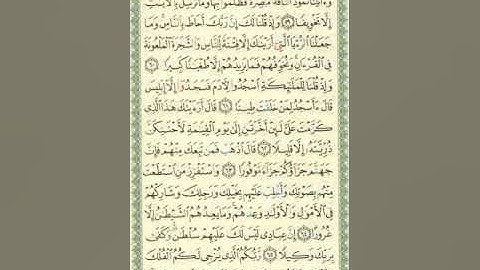 وَءَاتَيْنَا ثَمُودَ ٱلنَّاقَةَ مُبْصِرَةً فَظَلَمُوا۟ بِهَا وَمَا نُرْسِلُ بِٱلْءَايَٰتِ
إِلَّا تَخْوِيفًا ۝٥٩ وَإِذْ قُلْنَا لَكَ إِنَّ رَبَّكَ أَحَاطَ بِٱلنَّاسِ وَمَا
جَعَلْنَا ٱلرُّءْيَا ٱلَّتِىٓ أَرَيْنَٰكَ إِلَّا فِتْنَةً لِّلنَّاسِ وَٱلشَّجَرَةَ ٱلْمَلْعُونَةَ
فِى ٱلْقُرْءَانِ وَنُخَوِّفُهُمْ فَمَا يَزِيدُهُمْ إِلَّا طُغْيَٰنًا كَبِيرًا ۝٦٠
وَإِذْ قُلْنَا لِلْمَلَٰٓئِكَةِ ٱسْجُدُوا۟ لِءَادَمَ فَسَجَدُوٓا۟ إِلَّآ إِبْلِيسَ
قَالَ ءَأَسْجُدُ لِمَنْ خَلَقْتَ طِينًا ۝٦١ قَالَ أَرَءَيْتَكَ هَٰذَا ٱلَّذِى
كَرَّمْتَ عَلَىَّ لَئِنْ أَخَّرْتَنِ إِلَىٰ يَوْمِ ٱلْقِيَٰمَةِ لَأَحْتَنِكَنَّ
ذُرِّيَّتَهُۥٓ إِلَّا قَلِيلًا ۝٦٢ قَالَ ٱذْهَبْ فَمَن تَبِعَكَ مِنْهُمْ فَإِنَّ
جَهَنَّمَ جَزَآؤُكُمْ جَزَآءً مَّوْفُورًا ۝٦٣ وَٱسْتَفْزِزْ مَنِ ٱسْتَطَعْتَ
مِنْهُم بِصَوْتِكَ وَأَجْلِبْ عَلَيْهِم بِخَيْلِكَ وَرَجِلِكَ وَشَارِكْهُمْ
فِى ٱلْأَمْوَٰلِ وَٱلْأَوْلَٰدِ وَعِدْهُمْ وَمَا يَعِدُهُمُ ٱلشَّيْطَٰنُ إِلَّا
غُرُورًا ۝٦٤ إِنَّ عِبَادِى لَيْسَ لَكَ عَلَيْهِمْ سُلْطَٰنٌ وَكَفَىٰ
بِرَبِّكَ وَكِيلًا ۝٦٥ رَّبُّكُمُ ٱلَّذِى يُزْجِى لَكُمُ ٱلْفُلْكَ